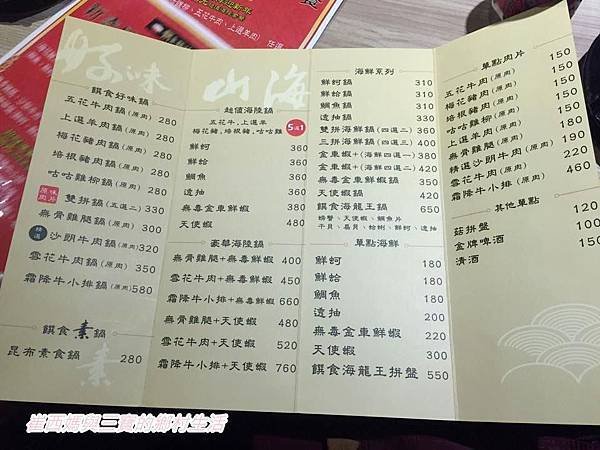 好味
饌食好味鍋
五花牛肉鍋(原肉) 280
上選羊肉鍋(原肉) 280
梅花豬肉鍋(原肉) 280
培根豬肉鍋(原肉) 280
咕咕雞柳鍋(原肉) 280
原味肉片 雙拼鍋(五選二) 330
無骨雞腿鍋(原肉) 300
精選 沙朗牛肉鍋(原肉) 320
雪花牛肉鍋(原肉) 350
霜降牛小排鍋(原肉) 580
饌食素鍋
素
昆布素食鍋 280
山海
超值海陸鍋
五花牛,上選羊
梅花豬,培根豬,咕咕雞 5選1
鮮蚵 360
鮮蛤 360
鯛魚 360
透抽 360
無毒金車鮮蝦 380
天使蝦 480
豪華海陸鍋
無骨雞腿+無毒鮮蝦 400
雪花牛肉+無毒鮮蝦 450
霜降牛小排+無毒鮮蝦 660
無骨雞腿+天使蝦 480
雪花牛肉+天使蝦 520
霜降牛小排+天使蝦 760
海鮮系列
鮮蚵鍋 310
鮮蛤鍋 310
鯛魚鍋 310
透抽鍋 330
雙拼海鮮鍋(四選二) 340
三拼海鮮鍋(四選三) 400
金車蝦+(海鮮四選一) 380
金車蝦+(海鮮四選二) 420
無毒金車鮮蝦鍋 350
天使蝦鍋 450
饌食海龍王鍋 650
螃蟹、天使蝦、鯛魚片
干貝、扇貝、蛤蜊、鮮蚵、透抽
單點海鮮
鮮蚵 180
鮮蛤 180
鯛魚 180
透抽 180
無毒金車鮮蝦 220
天使蝦 300
饌食海龍王拼盤 550
單點肉片
五花牛肉(原肉) 150
梅花豬肉(原肉) 150
培根豬肉(原肉) 150
咕咕雞柳(原肉) 150
上選羊肉(原肉) 150
無骨雞腿(原肉) 150
精選沙朗牛肉(原肉) 190
雪花牛肉(原肉) 220
霜降牛小排(原肉) 460
其他單點
菇拼盤 120
金牌啤酒 100
清酒 150
崔西媽與三寶的鄉村生活